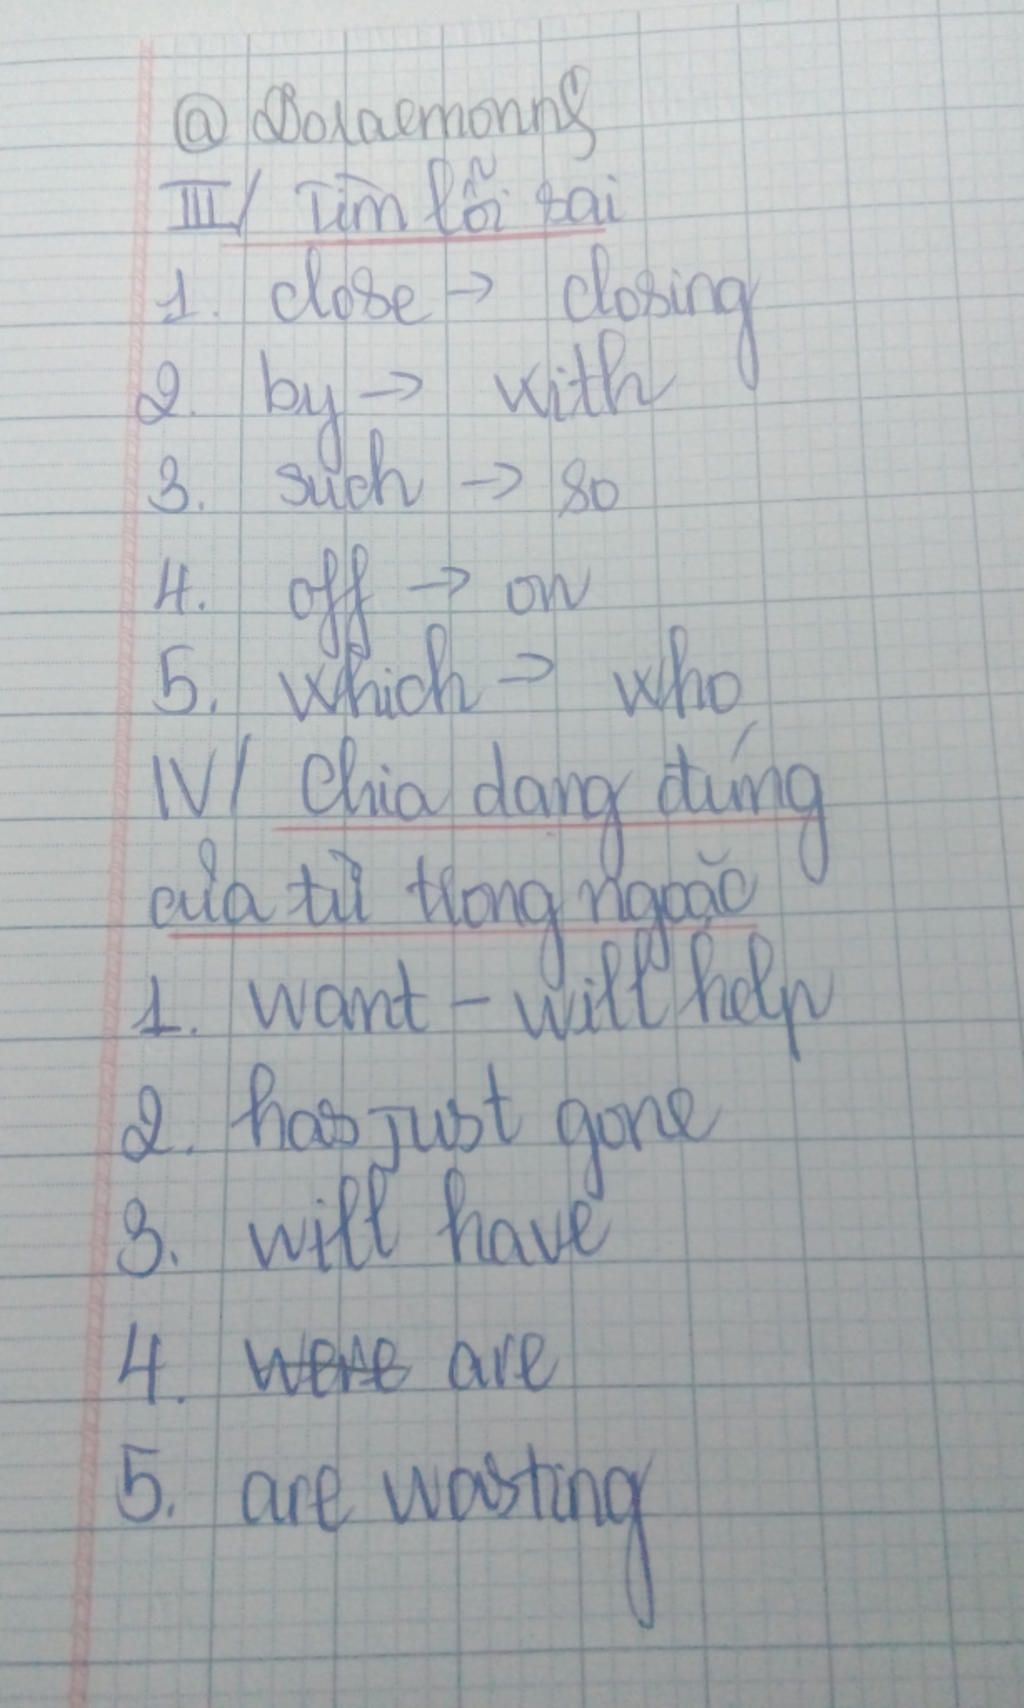 @ Doraemonng
III/ Tìm lỗi sai
1. close → closing
2. by → with
3. such → so
4. off → on
5. which → who
IV/ Chia dạng đúng
của từ trong ngoặc
1. want - will help
2. has just gone
3. will have
4. were are
5. are wasting